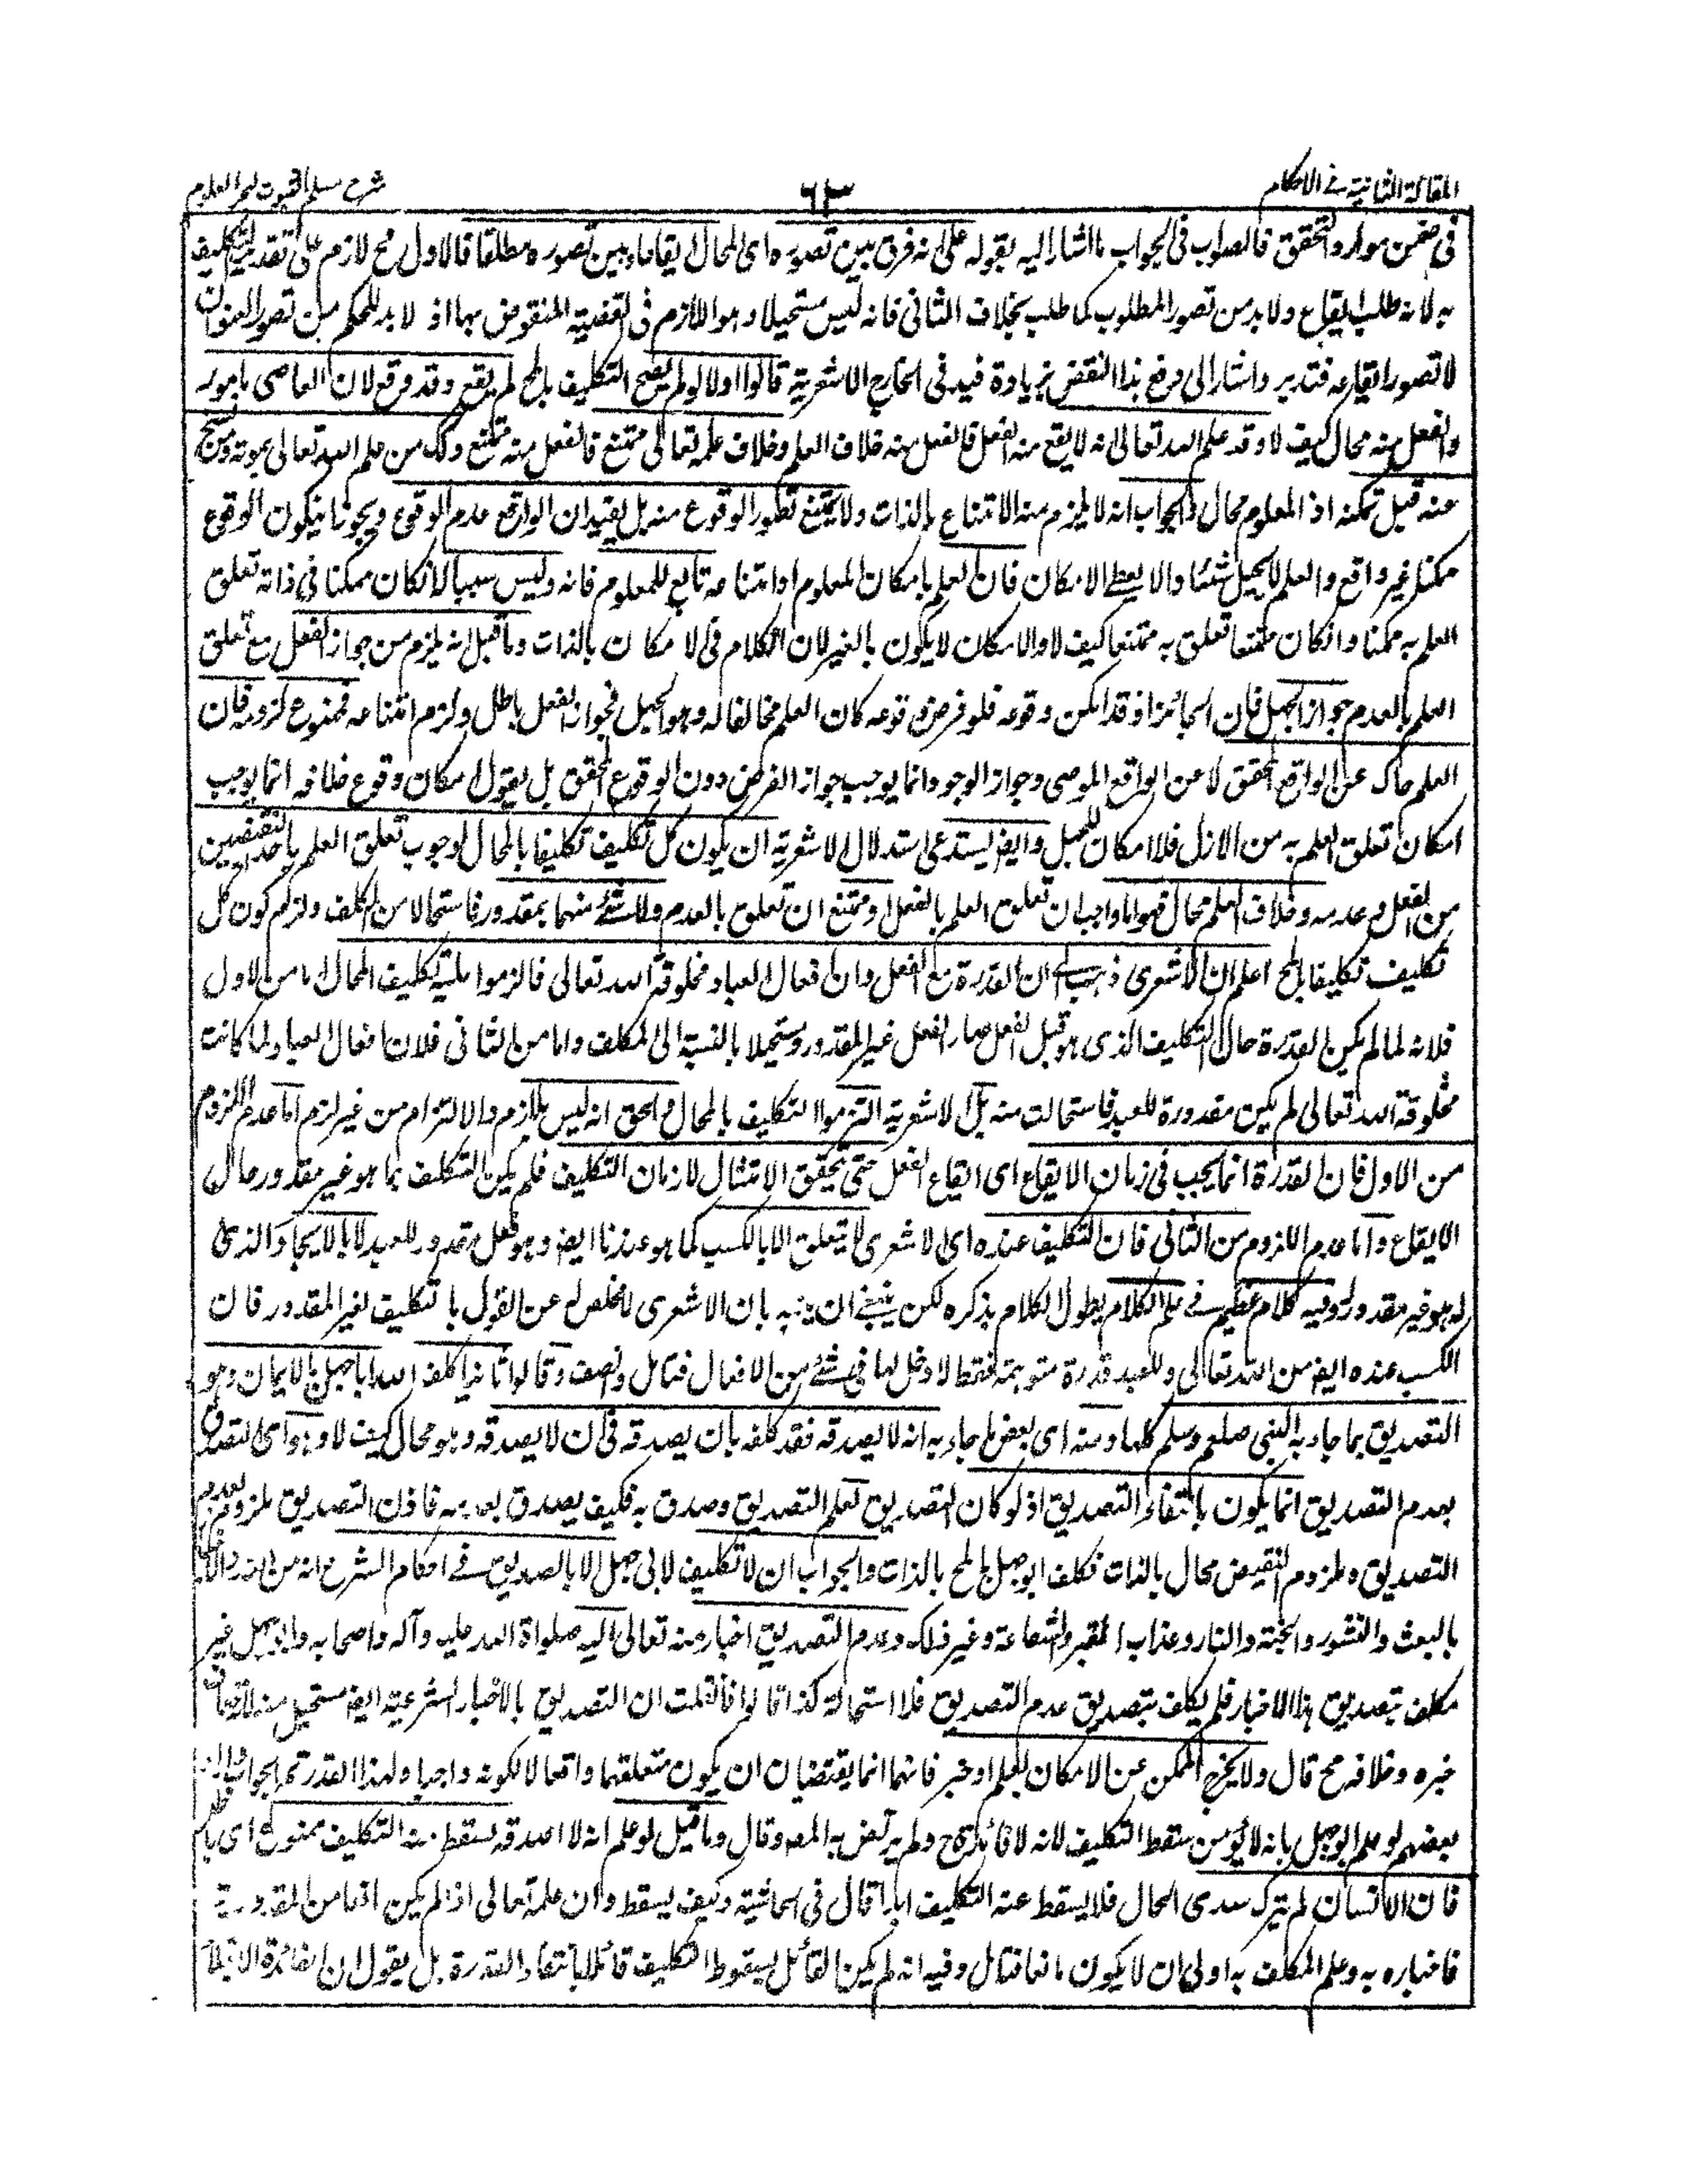 المقالة الثانية في الاحكام
٦٣
شرح مسلم الثبوت لبحر العلوم
في ضمن موارد التحقق فالصواب في الجواب ما اشار اليه بقوله على انه فرق بين تصوره اى المحال ايقاعا وبين تصوره مطلقا فالاول مح لازم على تقدير التكليف
به لانه طلب ايقاع ولابد من تصور المطلوب كما طلب بخلاف الثاني فانه ليس مستحيلا وهو اللازم في القضية المنقوض بها اذ لا بد للحكم من تصور العنوان
لا تصور ايقاعه فتدبر واشار الى دفع هذا النقض بزيادة قيد في الخارج الاشعرية قالوا اولا لو لم يصح التكليف بالمح لم يقع وقد وقع لان العاصى مامور
والفعل منه محال كيف لا وقد علم الله تعالى انه لا يقع منه الفعل فالفعل منه خلاف العلم وخلاف علمه تعالى ممتنع فالفعل منه ممتنع وكذلك من علم الله تعالى بموته ومن نسخ
عنه قبل تمكنه اذ المعلوم محال والجواب انه لا يلزم منه الامتناع بالذات ولا يمتنع تصور الوقوع منه بل يفيد ان الواقع عدم الوقوع ويجوز ان يكون الوقوع
ممكنا غير واقع والعلم لا يحيل شيئا والا يعطي الامكان فان العلم بامكان المعلوم او امتناعه تابع للمعلوم فانه وليس سببا لا ان كان ممكنا في ذاته تعلق
العلم به ممكنا وان كان ممتنعا تعلق به ممتنعا كيف لا والامكان لا يكون بالغير لان الكلام في الامكان بالذات وما قيل انه يلزم من جواز الفعل مع تعلق
العلم بالعدم جواز الجهل فان الجائز اذ قد امكن وقوعه فلو فرض وقوعه كان العلم مخالفا له وهو الجهل فجواز الفعل باطل ولزم امتناعه فممنوع لزومه فان
العلم حاك عن الواقع المحقق لا عن الواقع الفرضى وجواز الوجود انما يوجب جواز الفرض دون الوقوع المحقق بل يقول امكان وقوع خلافه انما يوجب
امكان تعلق العلم به من الازل فلا امكان للجهل وايضا يستدعى استدلال الاشعرية ان يكون كل تكليف تكليفا بالمحال لوجوب تعلق العلم باحد النقيضين
من الفعل وعدمه وخلاف العلم محال فهو اما واجب ان تعلق العلم بالفعل او ممتنع ان تعلق بالعدم ولا شئ منهما بمقدور فاستحالا من المكلف ولزم كون كل
تكليف تكليفا بالمح اعلم ان الاشعرى ذهب الى ان القدرة مع الفعل وان افعال العباد مخلوقة الله تعالى فالزموا عليه تكليف المحال اما من الاول
فلانه لما لم يكن القدرة حال التكليف الذى هو قبل الفعل صار الفعل غير المقدور ومستحيلا بالنسبة الى المكلف واما من الثاني فلان افعال العباد لما كانت
مخلوقة الله تعالى لم يكن مقدورة للعبد فاستحالت منه بل الاشعرية التزموا التكليف بالمحال والحق انه ليس بلازم والالتزام من غير لزم اما عدم اللزوم
من الاول فان القدرة انما يجب في زمان الايقاع اى ايقاع الفعل حتى يتحقق الامتثال لا زمان التكليف فلم يكن التكليف بما هو غير مقدور حال
الايقاع واما عدم اللزوم من الثاني فان التكليف عنده اى الاشعرى لا يتعلق الا بالكسب كما هو عندنا ايضا وهو فعل مقدور للعبد لا بالايجاد الذى
له هو غير مقدور له وفيه كلام عظيم في علم الكلام يطول الكلام بذكره لكن ينبغي ان ينبه بان الاشعرى لا مخلص له عن القول بالتكليف لغير المقدور فان
الكسب عنده ايضا من الله تعالى وللعبد قدرة متوهمة فقط لا دخل لها في شئ من الافعال فتامل وانصف وقالوا ثانيا كلف الله ابا جهل بالايمان وهو
التصديق بما جاء به النبى صلعم وسلم كلها ومنه اى بعض ما جاء به انه لا يصدقه فقد كلفه بان يصدقه في ان لا يصدقه وهو محال كيف لا وهو اى التصديق
بعدم التصديق انما يكون بانتفاء التصديق اذ لو كان التصديق لعلم التصديق وصدق به فكيف يصدق بعدمه فاذن التصديق ملزوم لعدم
التصديق وملزوم النقيض محال بالذات فكلف ابو جهل بالمح بالذات والجواب ان لا تكليف لابى جهل الا بالتصديق في احكام الشرع انه من
بالبعث والنشور والجنة والنار وعذاب القبر والشفاعة وغير ذلك وعدم التصديق اخبار منه تعالى اليه صلواة الله عليه وآله واصحابه وابو جهل غير
مكلف بتصديق هذا الاخبار فلم يكلف بتصديق عدم التصديق فلا استحالة كذا قالوا فان قلت ان التصديق بالاخبار الشرعية ايضا مستحيل منه
خبره وخلافه مح قال ولا يخرج الممكن عن الامكان لعلم او خبر فانهما انما يقتضيان ان يكون متعلقهما واقعا لا لكونه واجبا ولهذا القدر تم الجواب
بعضهم لو علم ابو جهل بانه لا يؤمن سقط التكليف لانه لا فائدة ح ولم يرتض به المصـ وقال وما قيل لو علم انه لا اصدقه لسقط منه التكليف ممنوع اى
فان الانسان لم يترك سدى الحال فلا يسقط عنه التكليف ابدا قال في الحاشية وكيف يسقط وان علمه تعالى اذ لم يكن مانعا من المقدورية
فاخباره به وعلم المكلف به اولى ان لا يكون مانعا فتامل وفيه انه لم يكن القائل بسقوط التكليف قائلا بانتفاء القدرة بل يقول ان الفائدة